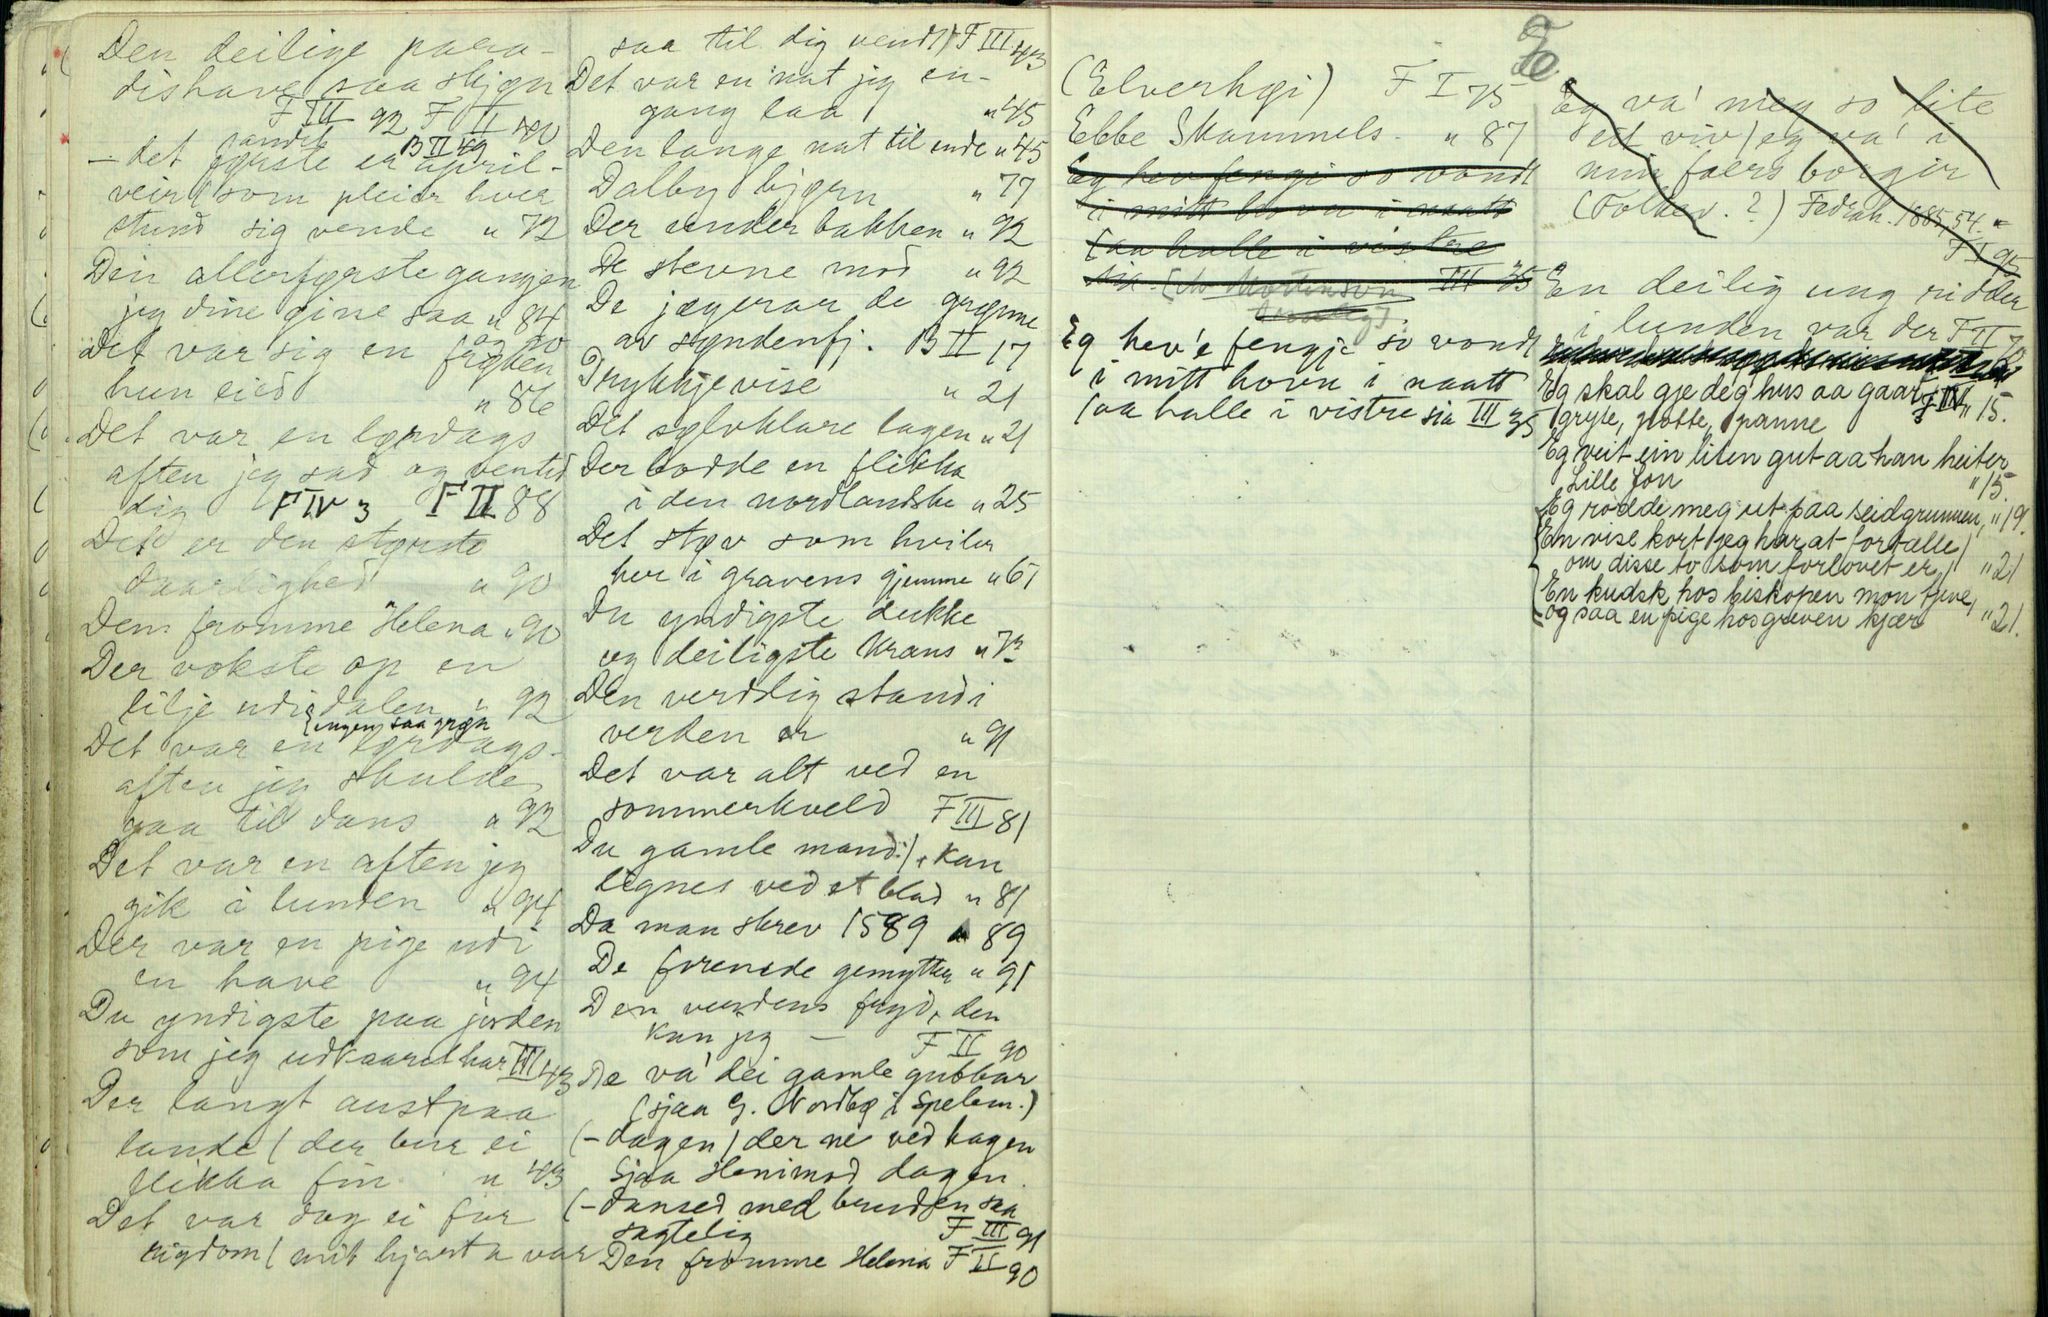 Den deilige para-
dishave saa skjøn
F III 92 F II 40
vandet B II 49
- det første er april-
veir / som pleier hver
stund sig vende " 72
Den allerførste gangen
jeg dine øine saa " 84
Det var sig en frøken
hun eied " 86
Det var en lørdags
aften jeg sad og ventet
dig F IV 3 F II 88
Det er den største
daarlighed " 90
Den fromme Helena " 90
Der vokste op en
lilje udi dalen " 92
(ingen saa grøn
Det var en lørdags-
aften jeg skulde
gaa til dans " 92
Det var en aften jeg
gik i lunden " 94
Der var en pige udi
en have " 94
Du yndigste paa jorden
som jeg udkaaret har III 43
Der langt austpaa
lande / der bur ei
flikka fin " 43
Det var dog ei for
rigdom / mit hjerte var
saa til dig vendt) F III 43
Det var en nat jeg en-
gang laa " 45
Den lange nat til ende " 45
Dalby bjørn " 77
Der under bakken " 92
De stevne mod " 92
De jægerar de grønne
av syndenfj. B II 17
Drykkjevise " 21
Det sølvklare lagen " 21
Der bodde en flikka
i den nordlandske " 25
Det støv som hviler
her i gravens gjemme " 61
Du yndigste dukke
og deiligste krans " 73
Den verdslig stand i
verden er " 91
Det var alt ved en
sommerkveld F III 81
Du gamle mand :/ kan
lignes ved et blad " 81
Da man skrev 1589 " 89
De forenede gemytter " 91
Den verdens fryd, den
kan jeg - F II 90
De va' dei gamle gubbar
(sjaa G. Nordbø i Spelem.)
(- dagen / der ne ved hagen
Sjaa Henimod dagen.
(- dansed med bruden saa
sagtelig F III 91
Den fromme Helena F II 90
E
(Elverhøi) F I 75
Ebbe Skammels- " 87
Eg hev fengje so vondt
i mitt hovu i naatt
(aa halle i vistre
sia III 35
Eg hev'e fengje so vondt
i mitt hovu i naatt
(aa halle i vistre sia III 35
Eg va' meg so lite
eit viv / eg va' i
min faers borgir
(Folkev. ?) Fedrah. 1885, 54.
F I 95
En deilig ung ridder
i lunden var der F II 72
Eg skal gje deg hus aa gaar F III
gryte, potte, panne " 15.
Eg veit ein liten gut aa han heiter
Lille Jon " 15.
Eg rodde meg ut paa seidgrunnen, " 19.
(En vise kort jeg har at fortælle /
om disse to som forlovet er / " 21
(En kudsk hos biskopen mon tjene,
og saa en pige hos greven kjær " 21.